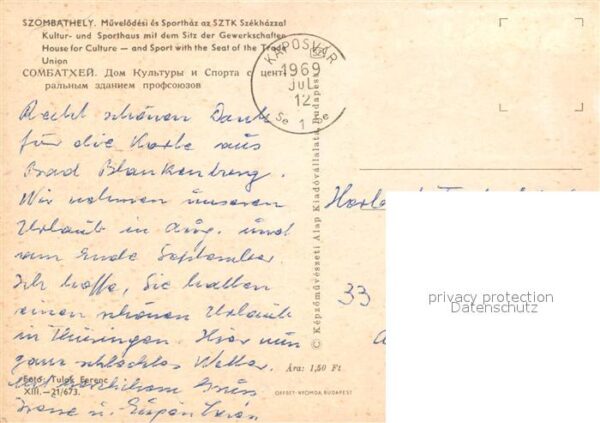 SZOMBATHELY. Művelődési és Sportház az SZTK Székházzal
Kultur- und Sporthaus mit dem Sitz der Gewerkschaften
House for Culture — and Sport with the Seat of the Trade
Union
СОМБАТХЕЙ. Дом Культуры и Спорта с цент-
ральным зданием профсоюзов
KAPOSVÁR
1969
JUL
12
1
Recht schönen Dank
für die Karte aus
Bad Blankenburg.
Wir nehmen unseren
Urlaub in Aug. und
am Ende September
Ich hoffe, Sie hatten
einen schönen Urlaub
in Thüringen. Hier nur
ganz schlechtes Wetter.
Mit herzlichem Gruss
Foto: Tulok Ferenc
XIII.—21/673.
© Képzőművészeti Alap Kiadóvállalata, Budapest
Ára: 1,50 Ft
OFFSET-NYOMDA, BUDAPEST
33
privacy protection
Datenschutz